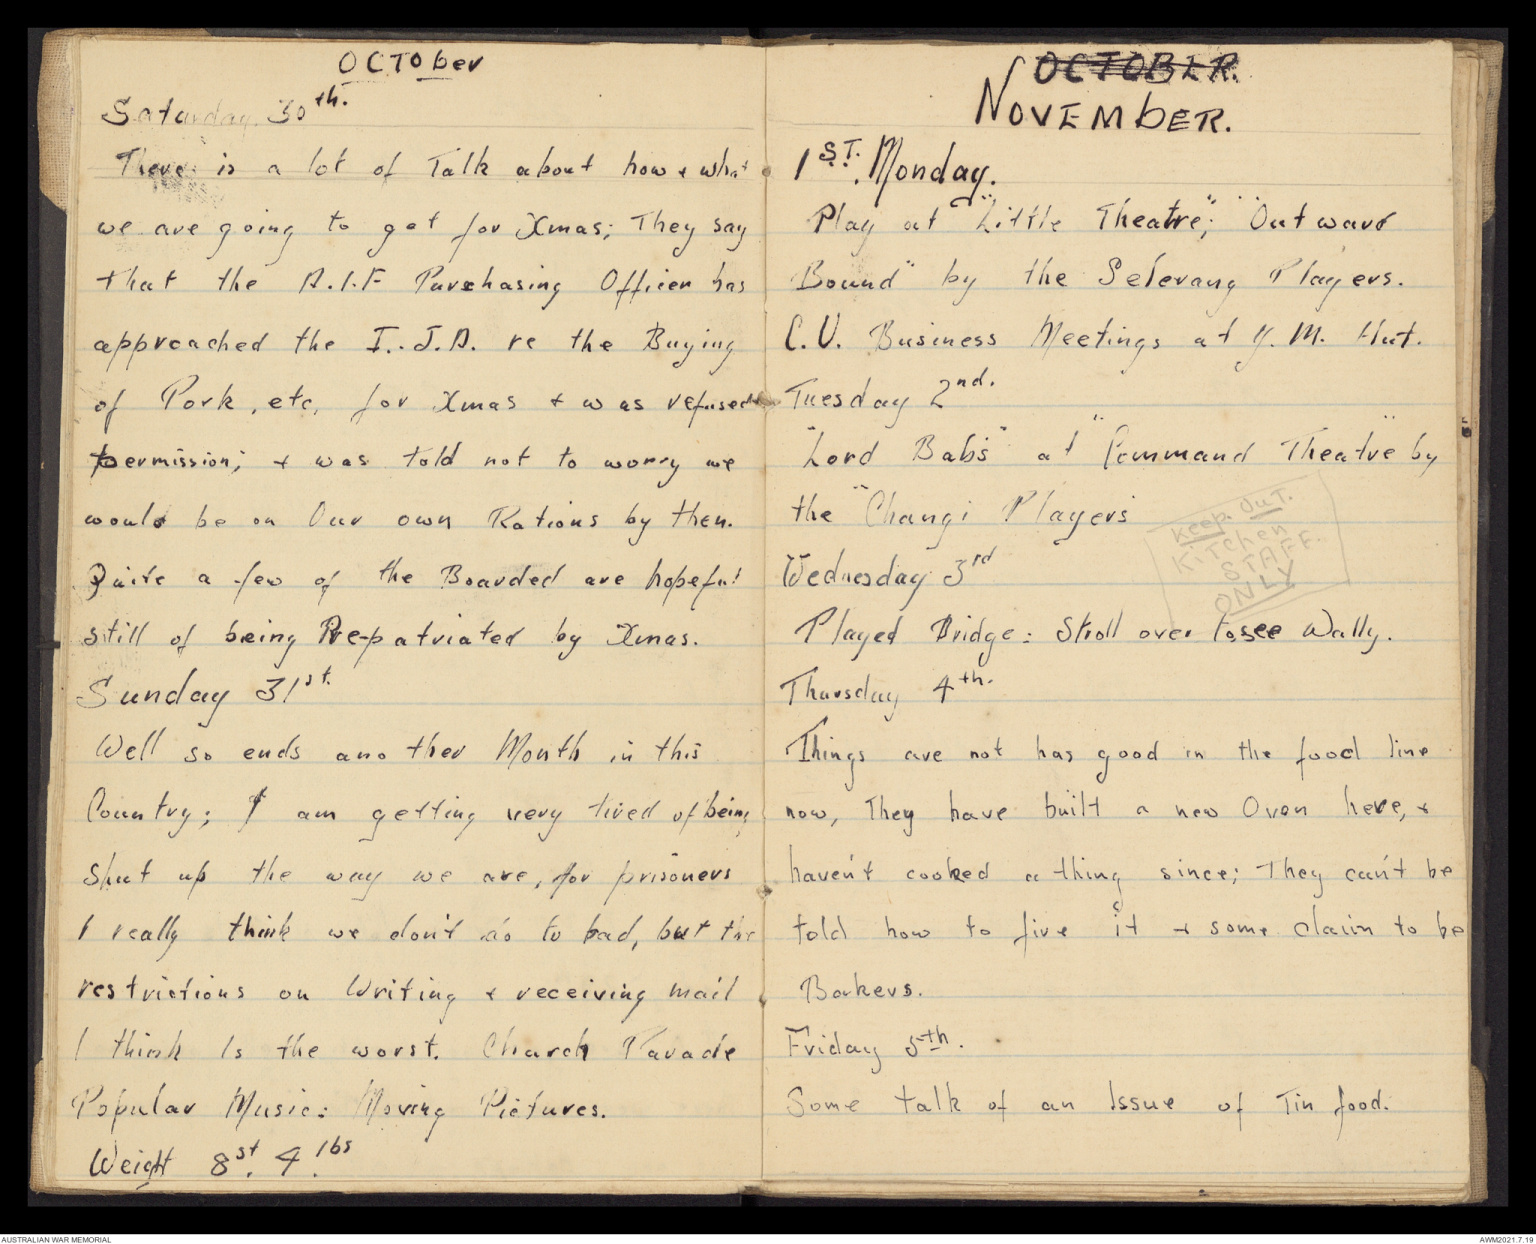 OCTOber
Saturday. 30th.
There is a lot of Talk about how & what
we are going to get for Xmas; They say
that the A.I.F Purchasing Officer has
approached the I.J.A. re the Buying
of Pork, etc, for Xmas & was refused
permission; & was told not to worry we
would be on Our own Rations by then.
Quite a few of the Boarded are hopeful
still of being Re-patriated by Xmas.
Sunday 31st.
Well so ends another Month in this
Country; I am getting very tired of being
shut up the way we are, for prisoners
I really think we don't do to bad, but the
restrictions on Writing & receiving mail
I think Is the worst. Church Parade
Popular Music: Moving Pictures.
Weight 8st. 4.lbs
OCTOBER.
NOVEMBER.
1ST. Monday.
Play at "Little Theatre"; "Outward
Bound" by the Selerang Players.
C.V. Business Meetings at Y.M. Hut.
Tuesday 2nd.
"Lord Babs" at "Command Theatre" by
the "Changi Players
Keep. OuT.
KiTchen
STAFF.
ONLY
Wednesday 3rd
Played Bridge: Stroll over to see Wally.
Thursday 4th.
Things are not has good in the food line
now, They have built a new Oven here, &
haven't cooked a thing since; They can't be
told how to fire it & some claim to be
Bakers.
Friday 5th.
Some talk of an Issue of Tin food.
AUSTRALIAN WAR MEMORIAL
AWM2021.7.19